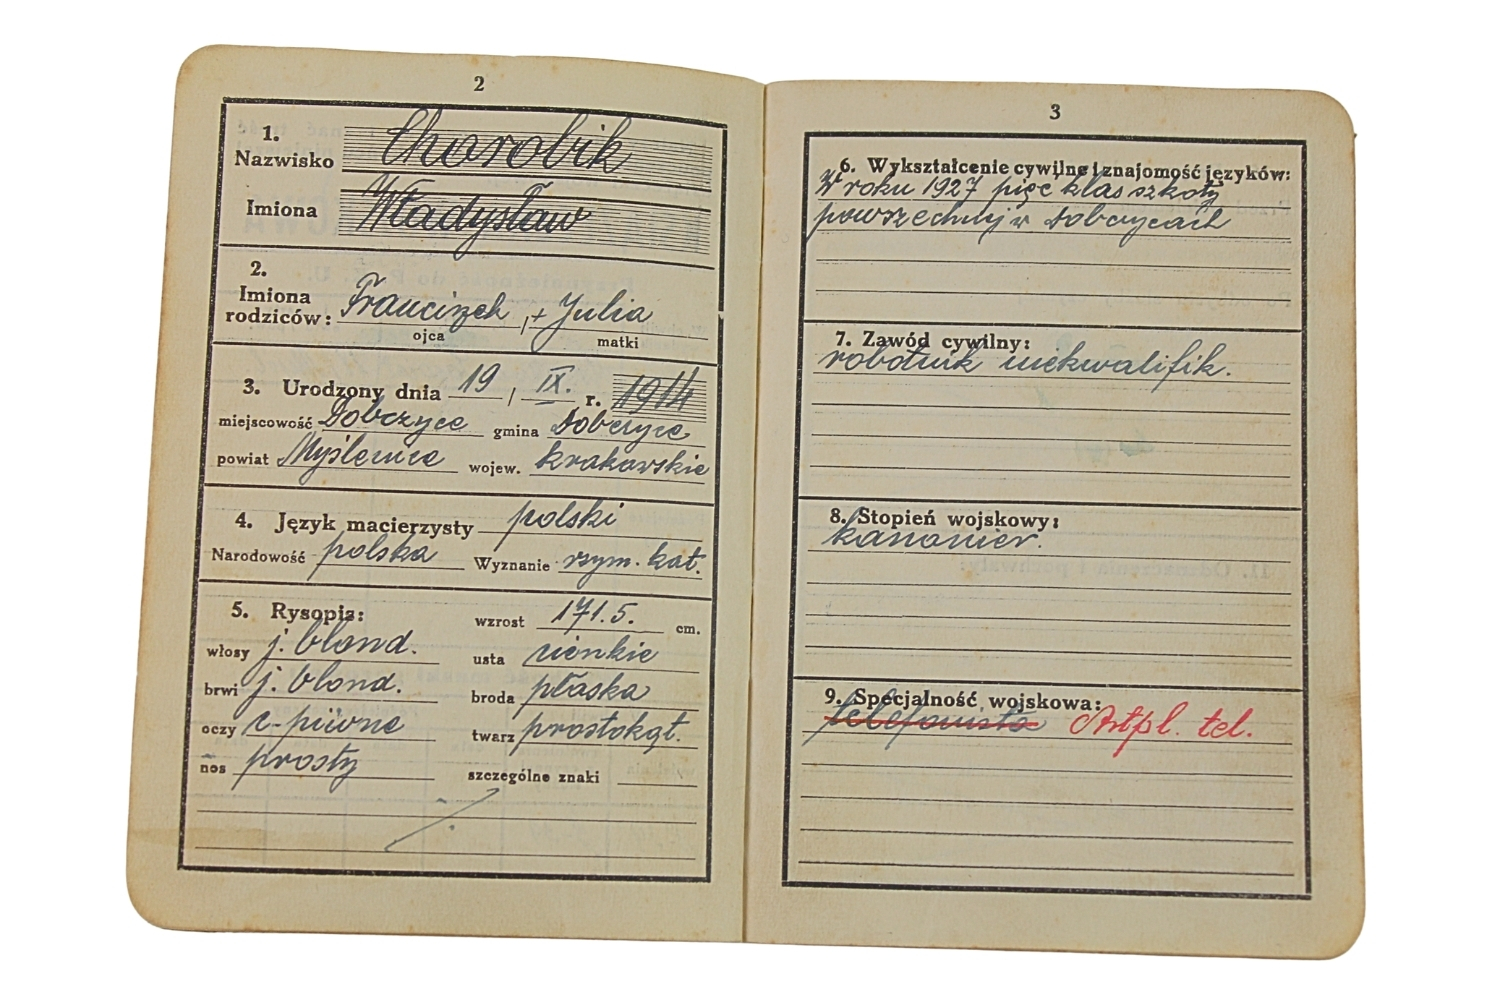 2
1.
Nazwisko Chorobik
Imiona Władysław
2.
Imiona
rodziców: Franciszek / + Julia
ojca matki
3. Urodzony dnia 19 / IX. r. 1914
miejscowość Dobczyce gmina Dobczyce
powiat Myślenice wojew. krakowskie
4. Język macierzysty polski
Narodowość polska Wyznanie rzym. kat.
5. Rysopis: wzrost 171.5. cm.
włosy j. blond. usta cienkie
brwi j. blond. broda płaska
oczy c-piwne twarz prostokąt.
nos prosty szczególne znaki
3
6. Wykształcenie cywilne i znajomość języków:
W roku 1927 pięc klas szkoły
powszechnej w Dobczycach
7. Zawód cywilny:
robotnik niekwalifik.
8. Stopień wojskowy:
kanonier.
9. Specjalność wojskowa:
telefonista Artpl. tel.